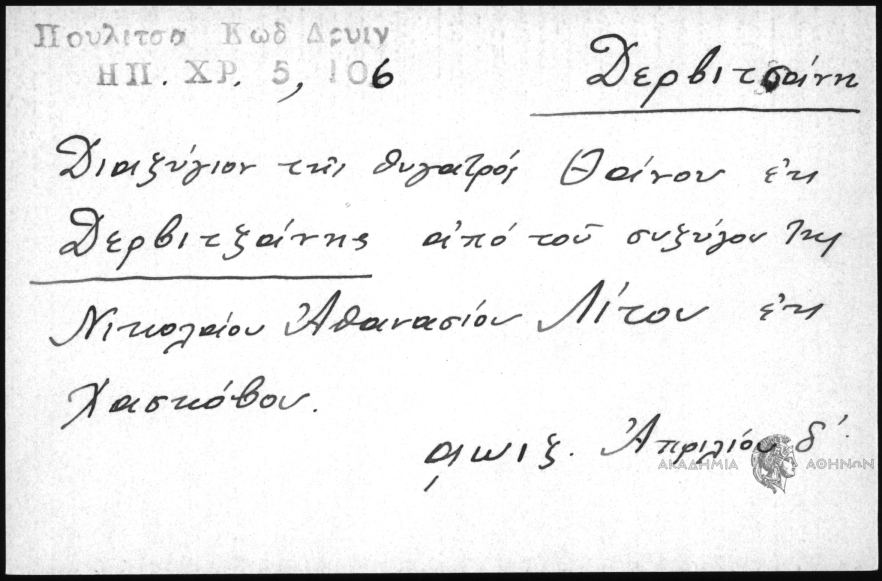 Πουλιτσα Κωδ Δρυιν
ΗΠ. ΧΡ. 5, 106
Δερβιτσάνη
Διαζύγιον τῆς θυγατρός Θαίνου ἐκ
Δερβιτζάνης ἀπό τοῦ συζύγου της
Νικολαίου Ἀθανασίου Λίτου ἐκ
Χασκόβου.
͵αωιζ. Ἀπριλίου δ΄.
ΑΚΑΔΗΜΙΑ ΑΘΗΝΩΝ